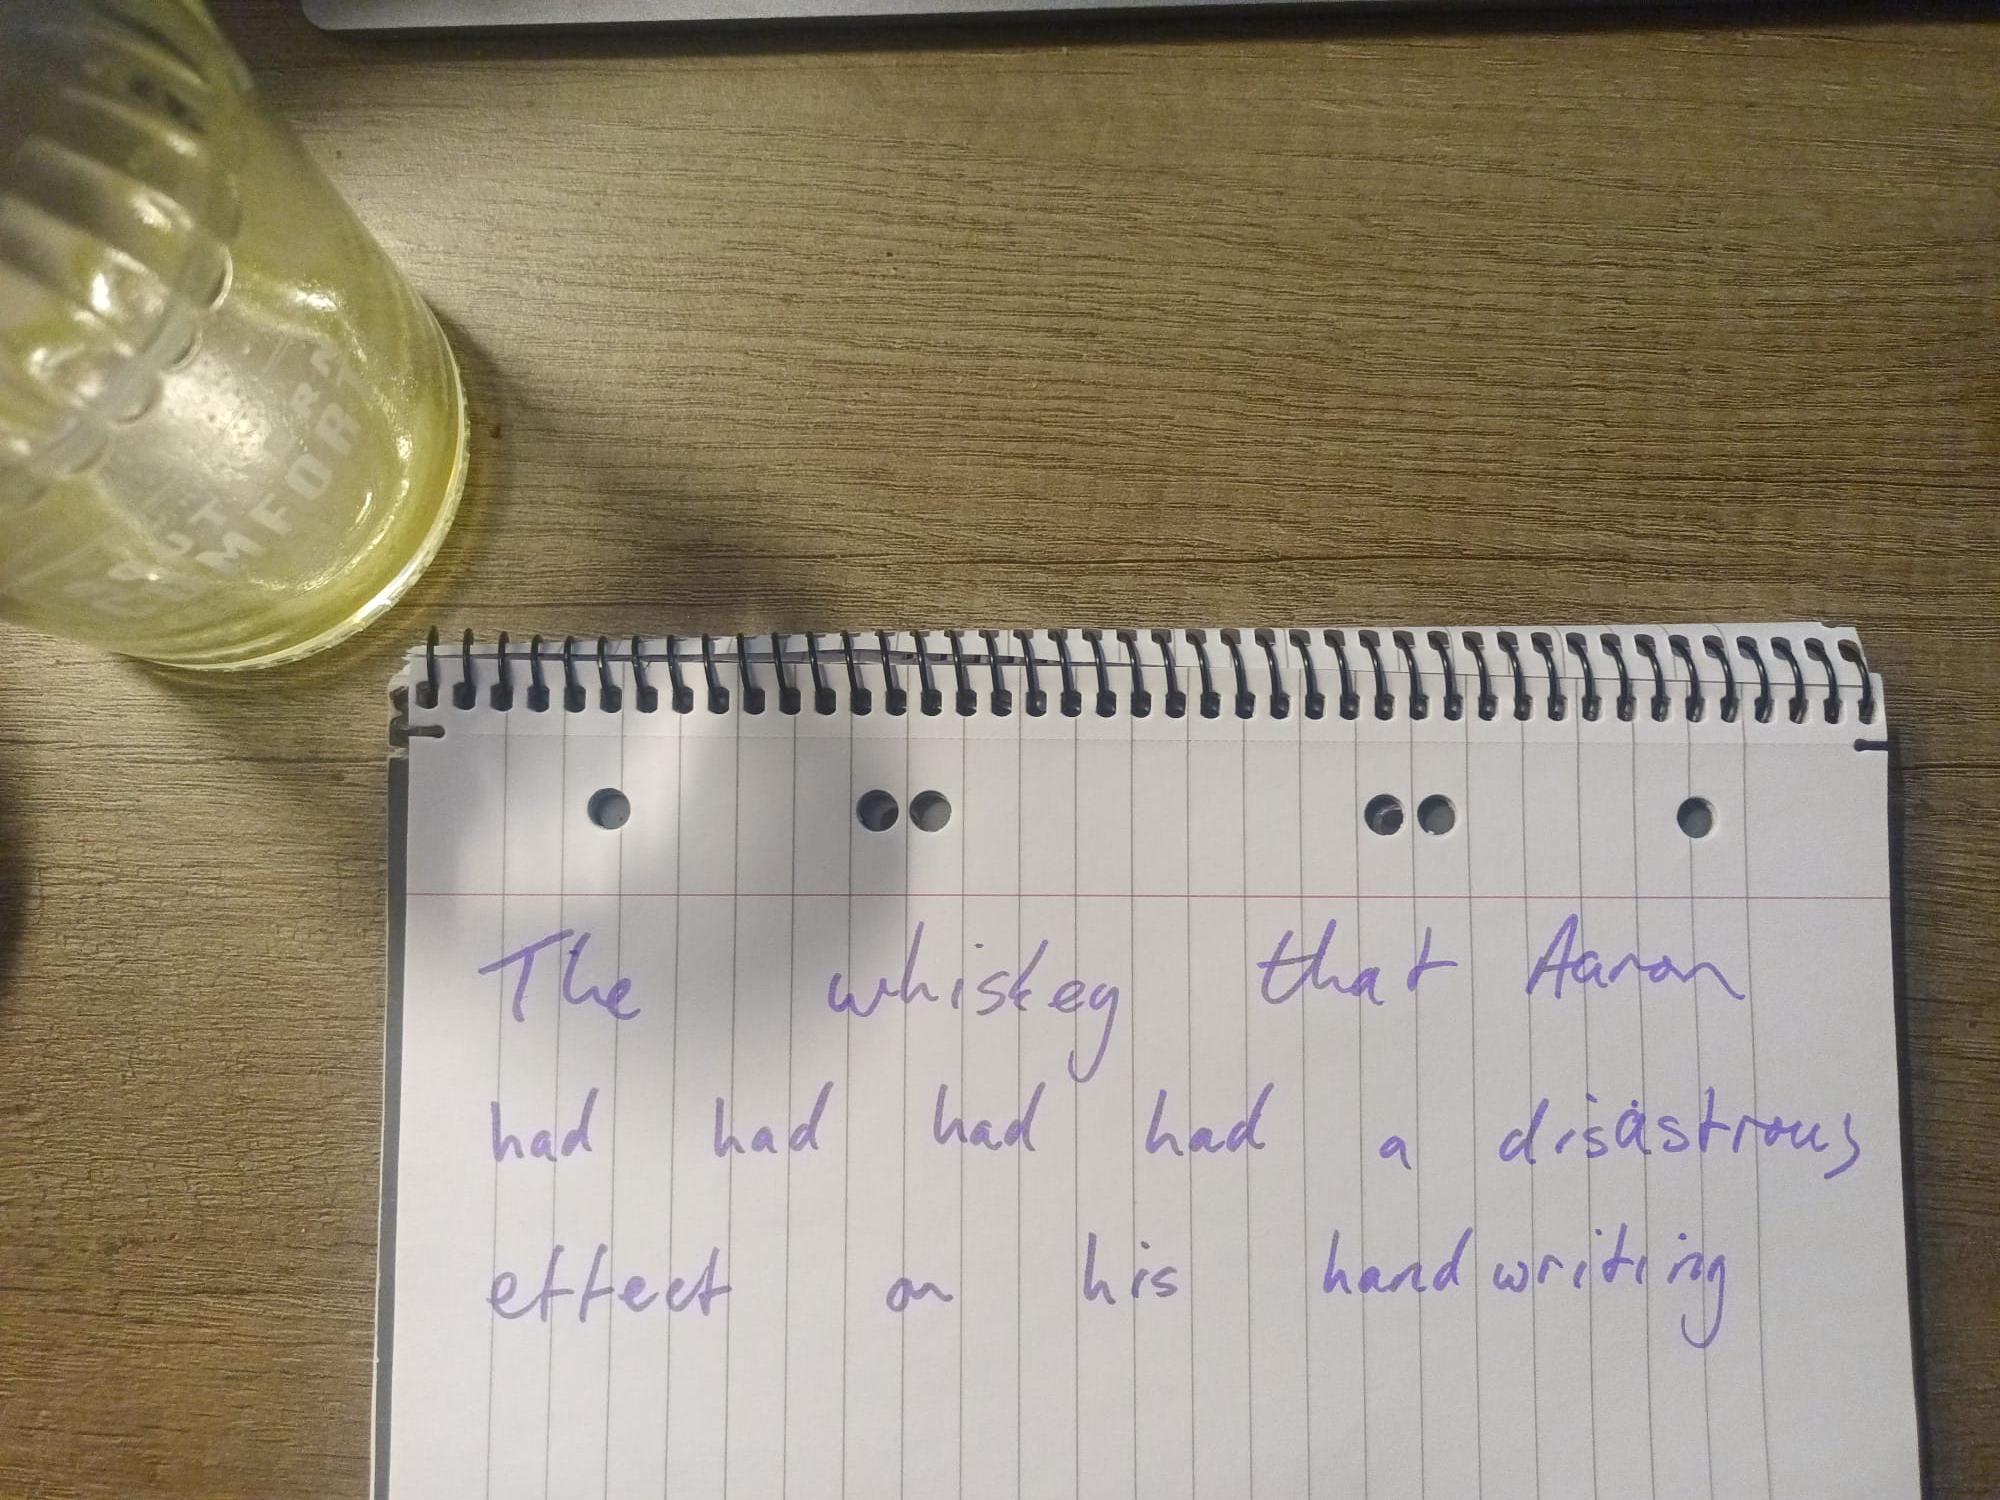 SOUTHERN
COMFORT
The whiskey that Aaron
had had had had a disastrous
effect on his handwriting